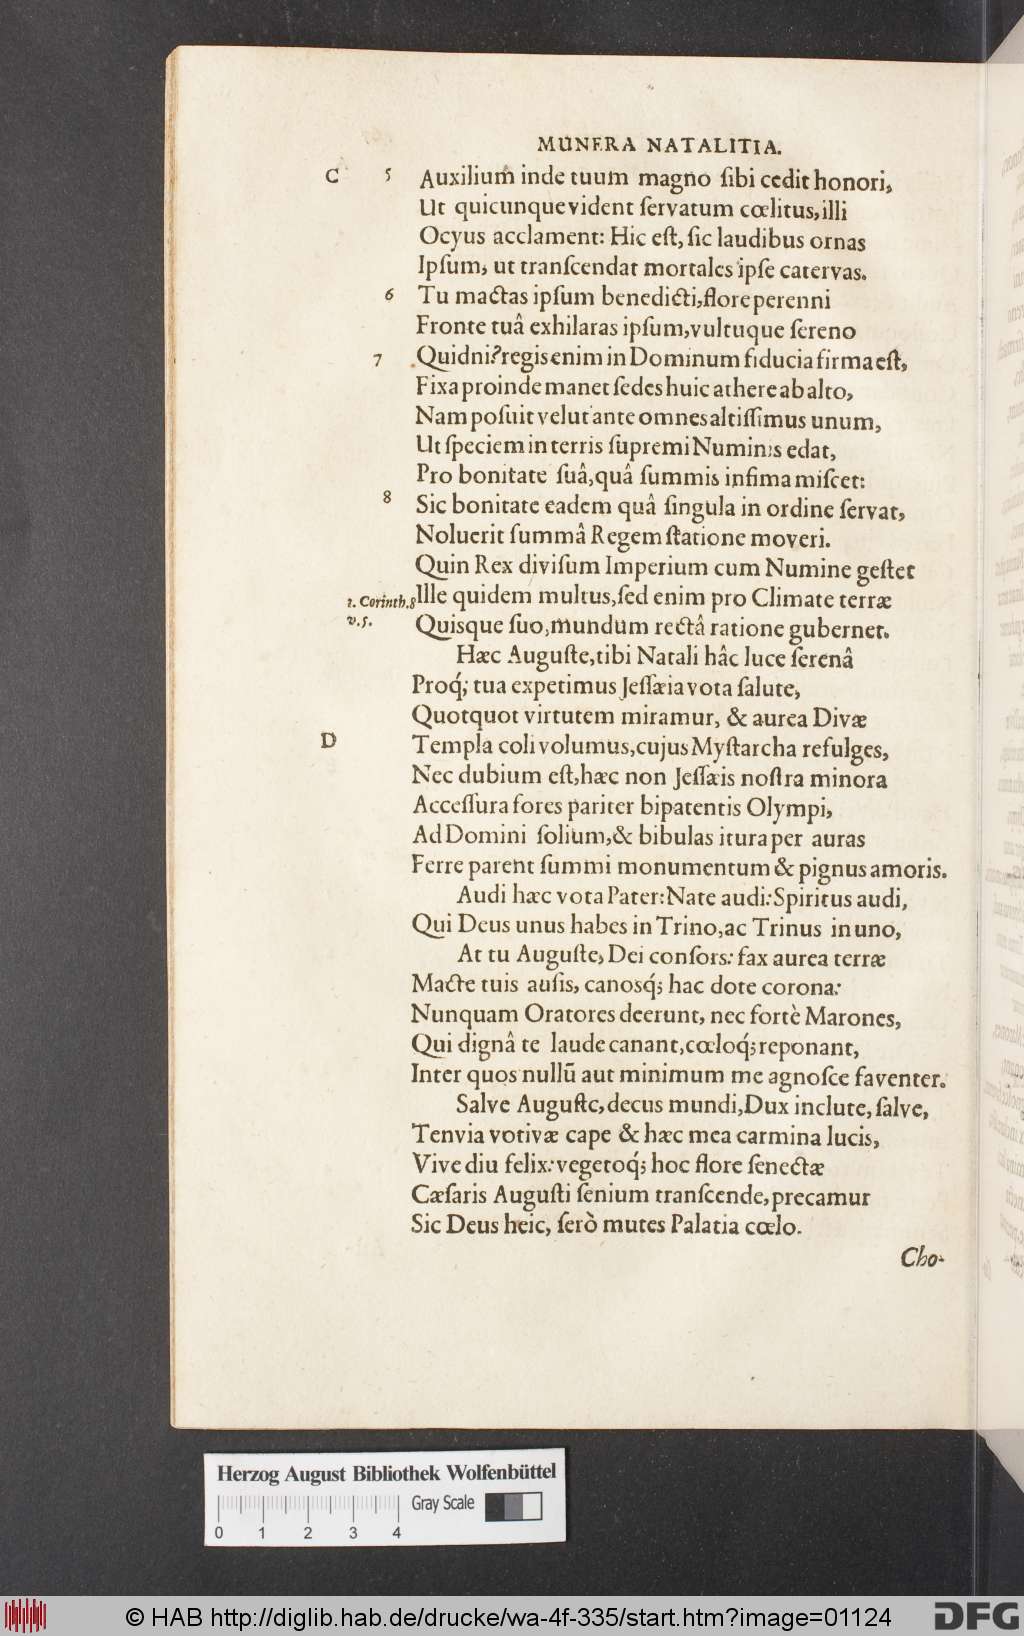 MUNERA NATALITIA.
C 5 Auxilium inde tuum magno ſibi cedit honori,
Ut quicunque vident ſervatum cœlitus, illi
Ocyus acclament: Hic eſt, ſic laudibus ornas
Ipſum, ut tranſcendat mortales ipſe catervas.
6 Tu mactas ipſum benedicti, flore perenni
Fronte tuâ exhilaras ipſum, vultuque ſereno
7 Quidni? regis enim in Dominum fiducia firma eſt,
Fixa proinde manet ſedes huic æthere ab alto,
Nam poſuit velut ante omnes altiſſimus unum,
Ut ſpeciem in terris ſupremi Numinis edat,
Pro bonitate ſuâ, quâ ſummis infima miſcet:
8 Sic bonitate eadem quâ ſingula in ordine ſervat,
Noluerit ſummâ Regem ſtatione moveri.
Quin Rex diviſum Imperium cum Numine geſtet
1. Corinth. 8 Ille quidem multus, ſed enim pro Climate terræ
v. 5. Quisque ſuo, mundum rectâ ratione gubernet.
Hæc Auguſte, tibi Natali hâc luce ſerenâ
Proq́; tua expetimus Jeſſæia vota ſalute,
Quotquot virtutem miramur, & aurea Divæ
D Templa coli volumus, cujus Myſtarcha refulges,
Nec dubium eſt, hæc non Jeſſæis noſtra minora
Acceſſura fores pariter bipatentis Olympi,
Ad Domini ſolium, & bibulas itura per auras
Ferre parent ſummi monumentum & pignus amoris.
Audi hæc vota Pater: Nate audi: Spiritus audi,
Qui Deus unus habes in Trino, ac Trinus in uno,
At tu Auguſte, Dei conſors: fax aurea terræ
Macte tuis auſis, canosq́; hac dote corona:
Nunquam Oratores deerunt, nec fortè Marones,
Qui dignâ te laude canant, cœloq́; reponant,
Inter quos nullū aut minimum me agnoſce faventer.
Salve Auguſte, decus mundi, Dux inclute, ſalve,
Tenvia votivæ cape & hæc mea carmina lucis,
Vive diu felix: vegetoq́; hoc flore ſenectæ
Cæſaris Auguſti ſenium tranſcende, precamur
Sic Deus heic, ſerò mutes Palatia cœlo.
Cho-
Herzog August Bibliothek Wolfenbüttel
Gray Scale
0 1 2 3 4
© HAB http://diglib.hab.de/drucke/wa-4f-335/start.htm?image=01124
DFG